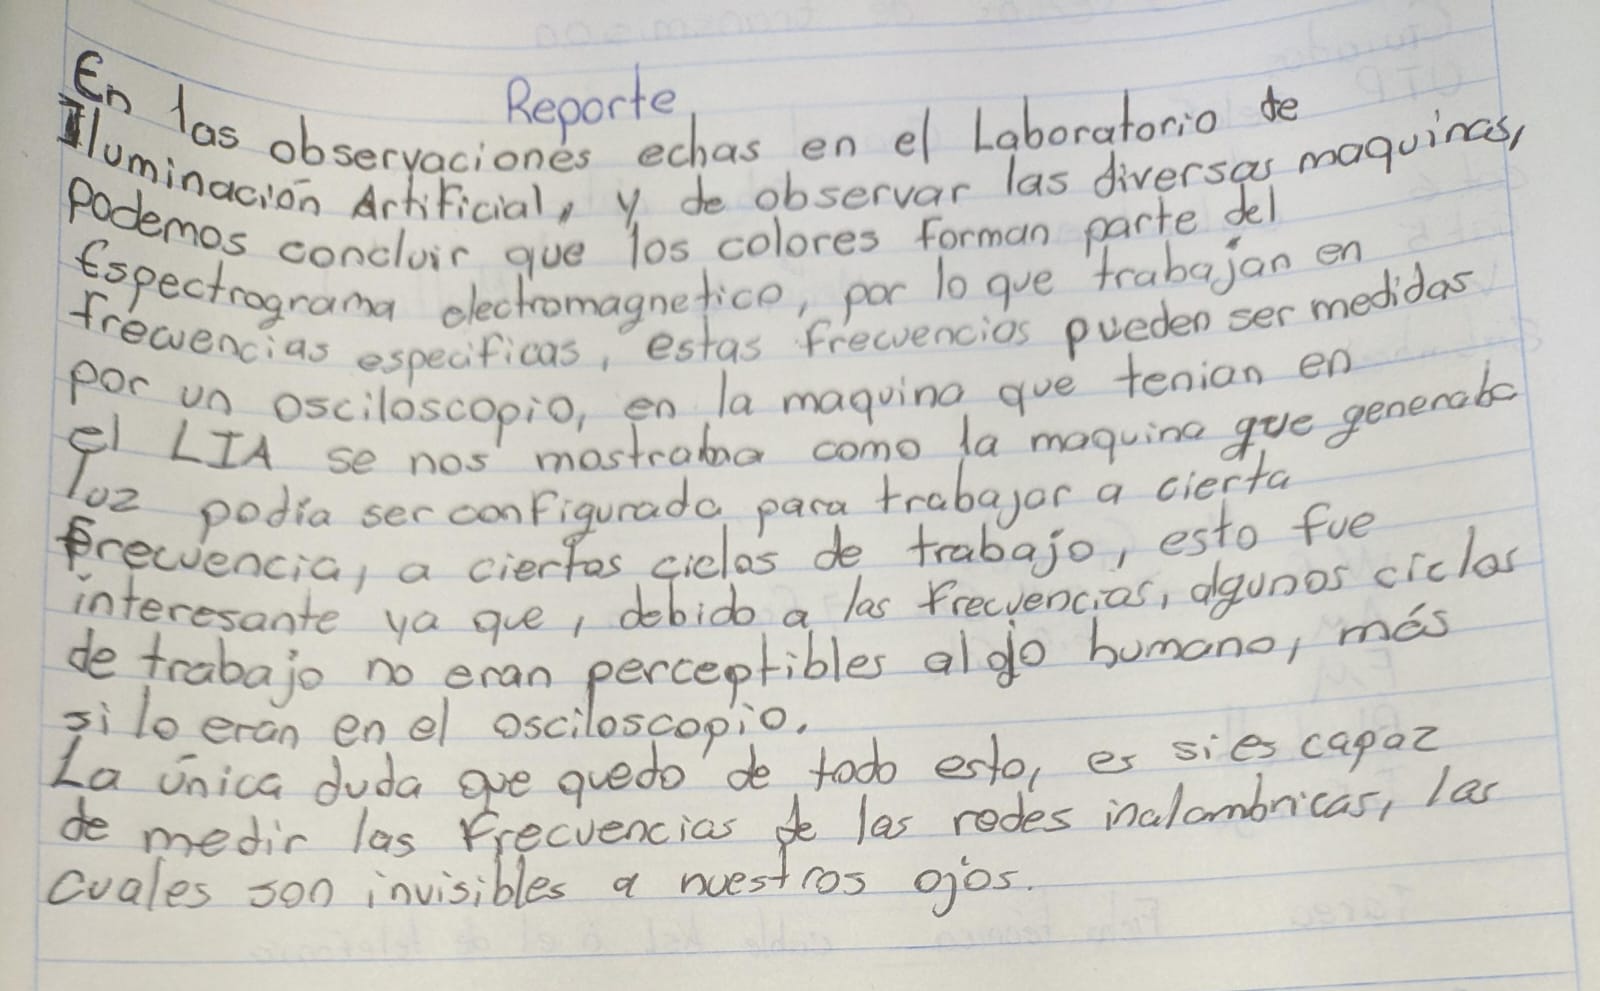 Reporte
En las observaciones echas en el Laboratorio de
Iluminación Artificial, y de observar las diversas maquinas,
podemos concluir que los colores forman parte del
Espectrograma electromagnetico, por lo que trabajan en
frecuencias especificas, estas frecuencias pueden ser medidas
por un osciloscopio, en la maquina que tenian en
el LIA se nos mostraba como la maquina que generaba
luz podía ser configurada para trabajar a cierta
frecuencia, a ciertos ciclos de trabajo, esto fue
interesante ya que, debido a las frecuencias, algunos ciclos
de trabajo no eran perceptibles al ojo humano, más
si lo eran en el osciloscopio.
La única duda que quedo de todo esto, es si es capaz
de medir las frecuencias de las redes inalambricas, las
cuales son invisibles a nuestros ojos.